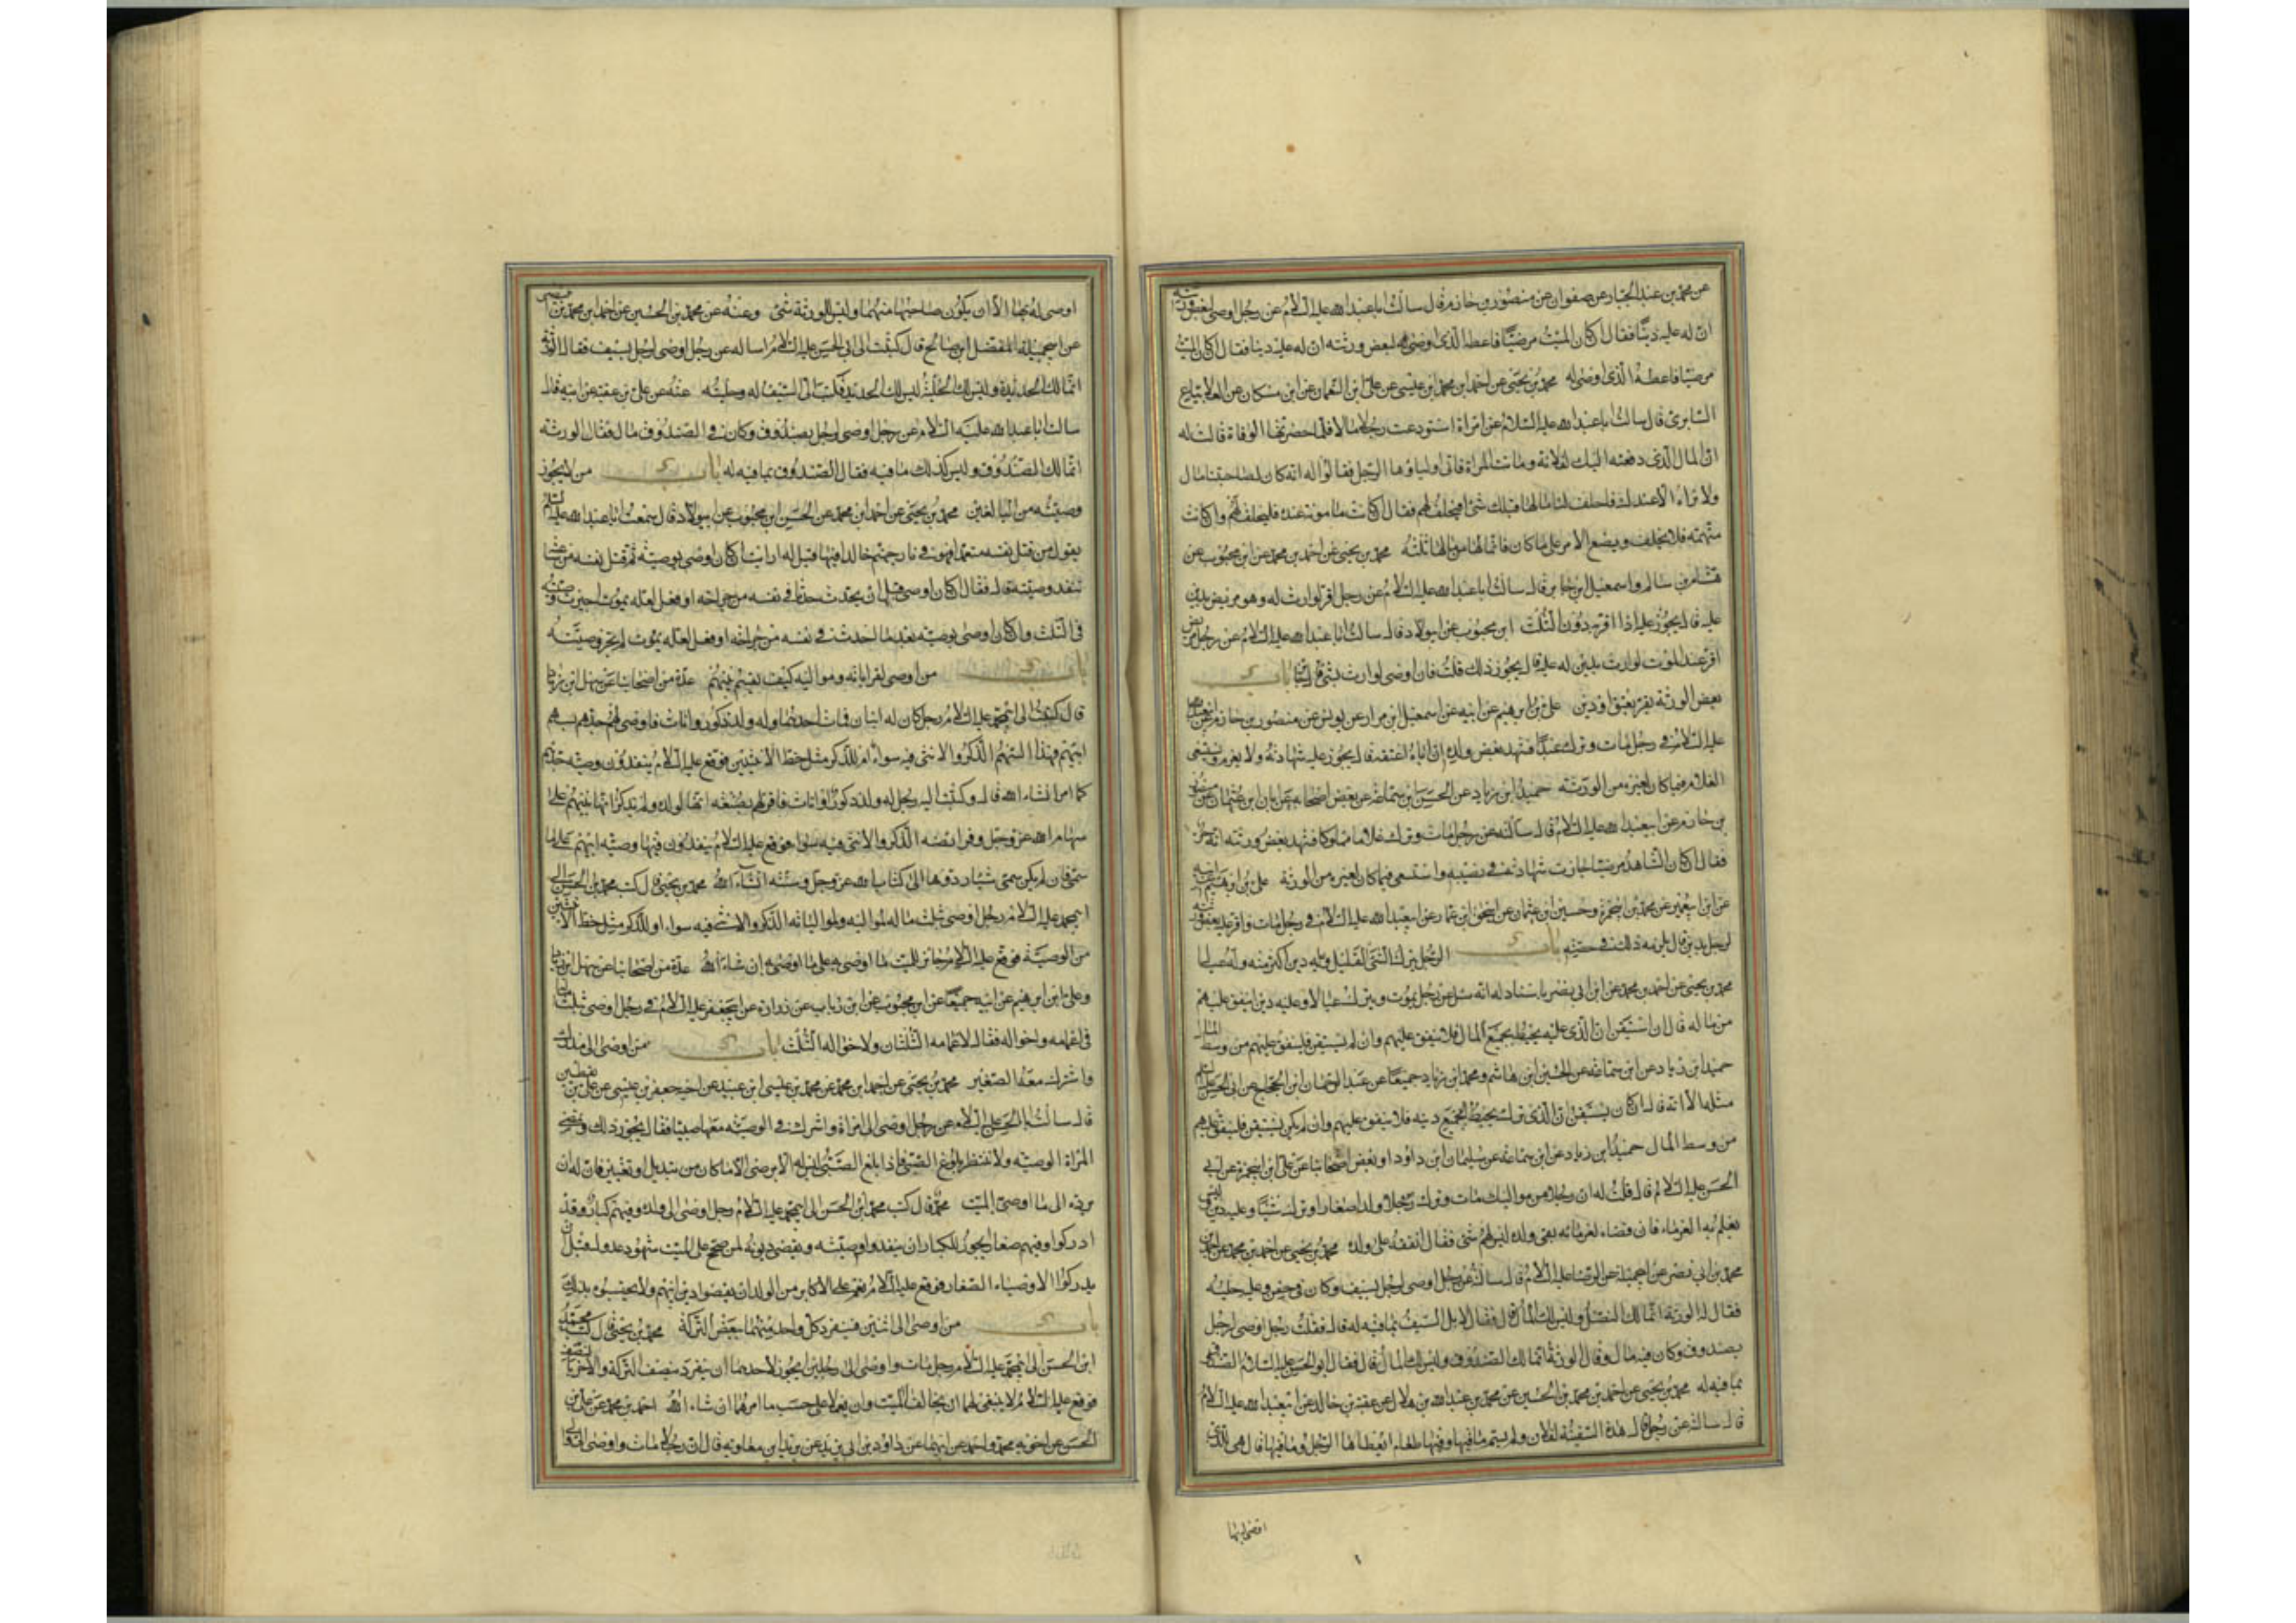 عن محمد بن عبد الجبار عن صفوان عن منصور بن حازم قال سالت ابا عبد الله عليه السلام عن رجل اوصى لبعض ورثته
ان له عليه دينا فقال ان كان الميت مرضيا فاعطه الذي اوصى له لبعض ورثته ان له عليه دينا فقال ان كان الميت
مرضيا فاعطه الذي اوصى له محمد بن يحيى عن احمد ابن محمد ابن عيسى عن على ابن النعمان عن ابن مسكان عن العلا بياع
السابرى قال سالت ابا عبد الله عليه السلام عن امراة استودعت رجلا مالا فلما حضرتها الوفاة قالت له
ان المال الذي دفعته اليك لفلانة وماتت المراة فاتى اولياؤها الرجل فقالوا له انه كان لصاحبتنا مال
ولا نراه الا عندك فاحلف لنا ما لها قبلك شئ افيحلف لهم فقال ان كانت مامونة عنده فليحلف لهم وان كانت
متهمة فلا يحلف ويضع الامر على ما كان فانما لها من مالها ثلثه محمد بن يحيى عن احمد بن محمد عن ابن محبوب عن
هشام بن سالم واسمعيل ابن جابر قال سالت ابا عبد الله عليه السلام عن رجل اقر لوارث له وهو مريض بدين
عليه قال يجوز عليه اذا اقر به دون الثلث ابن محبوب عن ابى ولاد قال سالت ابا عبد الله عليه السلام عن رجل مريض
اقر عند الموت لوارث بدين له عليه قال يجوز ذلك قلت فان اوصى لوارث بشئ قال جايز باب
بعض الورثة يقر بعتق او دين على بن ابرهيم عن ابيه عن اسمعيل ابن مرار عن يونس عن منصور بن حازم عن ابى عبد الله
عليه السلام في رجل مات وترك عبدا فشهد بعض ولده ان اباه اعتقه قال يجوز عليه شهادته ولا يغرم ويستسعى
الغلام فيما كان لغيره من الورثة حميد ابن زياد عن الحسن ابن سماعة عن بعض اصحابه عن ابان ابن عثمان عن منصور
بن حازم عن ابى عبد الله عليه السلام قال سالته عن رجل مات وترك غلاما مملوكا فشهد بعض ورثته انه حر
فقال ان كان الشاهد مرضيا جازت شهادته في نصيبه واستسعى فيما كان لغيره من الورثة على بن ابرهيم عن ابيه
عن ابن ابى عمير عن محمد بن ابى حمزة وحسين ابن عثمان عن اسحق ابن عمار عن ابى عبد الله عليه السلام في رجل مات واقر عليه بعض ورثته
لرجل بدين قال يلزمه ذلك في حصته باب الرجل يترك الشئ القليل وعليه دين اكثر منه وله عيال
محمد بن يحيى عن احمد بن محمد عن ابن ابى نصر باسناد له انه سئل عن رجل يموت ويترك عيالا وعليه دين اينفق عليهم
من ماله قال ان استيقن ان الذي عليه يحيط بجميع المال فلا ينفق عليهم وان لم يستيقن فلينفق عليهم من وسط المال
حميد ابن زياد عن ابن سماعة عن الحسين ابن هاشم ومحمد ابن زياد جميعا عن عبد الرحمان ابن الحجاج عن ابى الحسن عليه السلم
مثله الا انه قال ان كان يستيقن ان الذي ترك يحيط بجميع دينه فلا ينفق عليهم وان لم يكن يستيقن فلينفق عليهم
من وسط المال حميد ابن زياد عن ابن سماعة عن سليمان ابن داؤد او بعض اصحابنا عن على ابن ابى حمزة عن ابى
الحسن عليه السلام قال قلت له ان رجلا من مواليك مات وترك ولدا صغارا وترك شيئا وعليه دين وليس
يعلم به الغرماء فان قضاه لغرمائه بقى ولده ليس لهم شئ فقال انفقه على ولده محمد بن يحيى عن احمد بن محمد عن احمد بن
محمد بن ابى نصر عن ابى جميلة عن الرضا عليه السلام قال سالته عن رجل اوصى لرجل بسيف وكان في جفن وعليه حلية
فقال له الورثة انما لك النصل وليس لك المال قال فقال لا بل السيف بما فيه له قال فقلت رجل اوصى لرجل
بصندوق وكان فيه مال وقال الورثة انما لك الصندوق وليس لك المال قال فقال ابو الحسن عليه السلام الصندوق
بما فيه له محمد بن يحيى عن احمد بن محمد بن الحسين عن محمد بن عبد الله بن هلال عن عقبة بن خالد عن ابى عبد الله عليه السلام
قال سالته عن رجل قال هذه السفينة لفلان ولم يسم ما فيها وفيها طعام ايعطاها الرجل وما فيها قال هى للذي
اوصى لها
اوصى له بها الا ان يكون صاحبها متهما وليس للورثة شئ وعنه عن محمد بن الحسين عن احمد ابن محمد بن ابى نصر
عن ابى جميلة المفضل ابن صالح قال كتبت الى ابى الحسن عليه السلام اساله عن رجل اوصى لرجل بسيف فقال الورثة
انما لك الحديد وليس لك الحلية ليس لك الحديد فكتب الى السيف له وحليته عنه عن على بن عقبة عن ابيه قال
سالت ابا عبد الله عليه السلام عن رجل اوصى لرجل بصندوق وكان في الصندوق مال فقال الورثة
انما لك الصندوق وليس لك ما فيه فقال الصندوق بما فيه له باب من لا يجوز
وصيته من البالغين محمد بن يحيى عن احمد ابن محمد عن الحسن ابن محبوب عن ابى ولاد قال سمعت ابا عبد الله عليه السلم
يقول من قتل نفسه متعمدا فهو في نار جهنم خالدا فيها قيل له ارايت ان كان اوصى بوصيته ثم قتل نفسه من ساعته
تنفذ وصيته قال فقال ان كان اوصى قبل ان يحدث حدثا في نفسه من جراحه او فعل لعله يموت اجيزت وصيته
في الثلث وان كان اوصى بوصية بعد ما احدث في نفسه من جراحه او فعل لعله يموت لم يجز وصيته
باب من اوصى لقراباته ومواليه كيف يقسم بينهم عدة من اصحابنا عن سهل ابن زياد
قال كتبت الى ابى محمد عليه السلام رجل كان له ابنان فمات احدهما وله ولد ذكور واناث فاوصى لهم جدهم بسهم
ابيهم فهذا السهم الذكر والانثى فيه سواء ام للذكر مثل حظ الانثيين فوقع عليه السلام ينفذون وصية جدهم
كما امر انشاء الله قال وكتبت اليه رجل له ولد ذكور واناث فاقر لهم بضيعة انها لولده ولم يذكر انها بينهم على
سهام الله عز وجل وفرائضه الذكر والانثى فيه سواء فوقع عليه السلام ينفذون فيها وصية ابيهم على ما
سمى فان لم يكن سمى شيئا ردوها الى كتاب الله عز وجل وسنته انشاء الله محمد بن يحيى قال كتب محمد بن الحسن الى
ابى محمد عليه السلام رجل اوصى بثلث ماله لمواليه ولموالياته الذكر والانثى فيه سواء او للذكر مثل حظ الانثيين
من الوصية فوقع عليه السلام جائز للميت ما اوصى به على ما اوصى به ان شاء الله عدة من اصحابنا عن سهل ابن زياد
وعلى ابن ابرهيم عن ابيه جميعا عن ابن محبوب عن ابن رباب عن زرارة عن ابى جعفر عليه السلام في رجل اوصى بثلث ماله
في اعمامه واخواله فقال لاعمامه الثلثان ولاخواله الثلث باب من اوصى الى مدرك
واشرك معه الصغير محمد بن يحيى عن احمد ابن محمد عن محمد بن عيسى ابن عبيد عن اخيه جعفر بن عيسى عن على بن يقطين
قال سالت ابا الحسن عليه السلام عن رجل اوصى الى امراة واشرك في الوصية معها صبيا فقال يجوز ذلك وتمضى
المراة الوصية ولا تنتظر بلوغ الصبى فاذا بلغ الصبى فليس له الا يرضى الا ما كان من تبديل او تغيير فان له ان
يرده الى ما اوصى به الميت محمد قال كتب محمد ابن الحسن الى ابى محمد عليه السلام رجل اوصى الى ولده وفيهم كبار وقد
ادركوا وفيهم صغار ايجوز للكبار ان ينفذوا وصيته ويقضى ديونه لمن صح على الميت بشهود عدول قبل ان
يدركوا الاوصياء الصغار فوقع عليه السلام نعم على الاكابر من الولدان ان يقضوا دين ابيهم ولا يحبسوه بذلك
باب من اوصى الى اثنين فينفرد كل واحد منهما ببعض التركة محمد بن يحيى قال كتب محمد
ابن الحسن الى ابى محمد عليه السلام رجل مات واوصى الى رجلين ايجوز لاحدهما ان ينفرد بنصف التركة والاخر بالنصف
فوقع عليه السلام لا ينبغى لهما ان يخالفا الميت وان يعملا على حسب ما امرهما ان شاء الله احمد بن محمد عن على بن
الحسن عن اخويه محمد واحمد عن ابيهما عن داود بن ابى يزيد عن بريد ابن معاوية قال ان رجلا مات واوصى الى